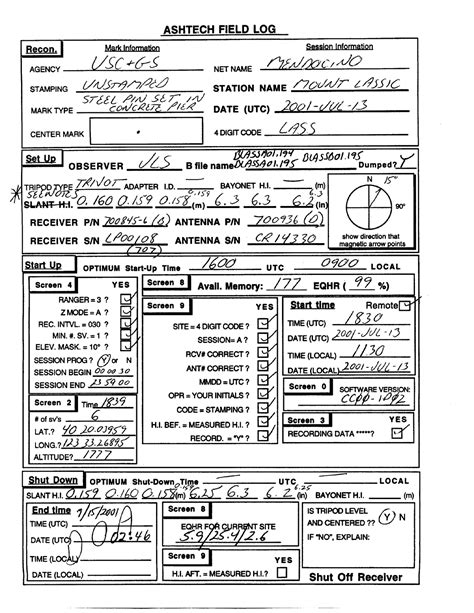 ASHTECH FIELD LOG
Recon. Mark Information Session Information
AGENCY USC+GS NET NAME MENDOCINO
STAMPING UNSTAMPED STATION NAME MOUNT LASSIC
MARK TYPE STEEL PIN SET IN CONCRETE PIER DATE (UTC) 2001-JUL-13
CENTER MARK 4 DIGIT CODE LASS
Set Up OBSERVER JLS B file name BLASSA01.194 BLASSA01.195 BLASSD01.195 Dumped? Y
TRIPOD TYPE TRIVOT ADAPTER I.D. BAYONET H.I. (m)
* SEE NOTES
SLANT H.I. 0.160 0.159 0.158 0.159 (m) 6.3 6.3 6.2 6.3 (in)
N 15°
90°
show direction that magnetic arrow points
RECEIVER P/N 700845-6 (D) ANTENNA P/N 700936 (D)
RECEIVER S/N LP00108 (707) ANTENNA S/N CR14330
Start Up OPTIMUM Start-Up Time 1600 UTC 0900 LOCAL
Screen 4 YES
RANGER = 3 ?
Z MODE = A ?
REC. INTVL. = 030 ?
MIN. # SV. = 1 ?
ELEV. MASK. = 10° ?
SESSION PROG ? Y or N
SESSION BEGIN 00 00 30
SESSION END 23 59 00
Screen 2 Time 1839
# of sv's 6
LAT.? 40 20.03959
LONG.? 123 33.26895
ALTITUDE? 1777
Screen 8 Avail. Memory: 177 EQHR ( 99 %)
Screen 9 YES
SITE = 4 DIGIT CODE ?
SESSION= A ?
RCV# CORRECT ?
ANT# CORRECT ?
MMDD = UTC ?
OPR = YOUR INITIALS ?
CODE = STAMPING ?
H.I. BEF. = MEASURED H.I. ?
RECORD. = "Y" ?
Start time Remote
TIME (UTC) 1830
DATE (UTC) 2001-JUL-13
TIME (LOCAL) 1130
DATE (LOCAL) 2001-JUL-13
Screen 0 SOFTWARE VERSION:
CC00-1D02
Screen 3 YES
RECORDING DATA *****?
Shut Down OPTIMUM Shut-Down Time UTC LOCAL
SLANT H.I. 0.159 0.160 0.158 (m) 6.25 6.3 6.2 6.25 (in) BAYONET H.I. (m)
End time 7/15/2001
TIME (UTC)
DATE (UTC) 02:46
TIME (LOCAL)
DATE (LOCAL)
Screen 8
EQHR FOR CURRENT SITE
5.9/25.4/2.6
Screen 9 YES
H.I. AFT. = MEASURED H.I.?
IS TRIPOD LEVEL AND CENTERED ?? Y N
IF "NO", EXPLAIN:
Shut Off Receiver